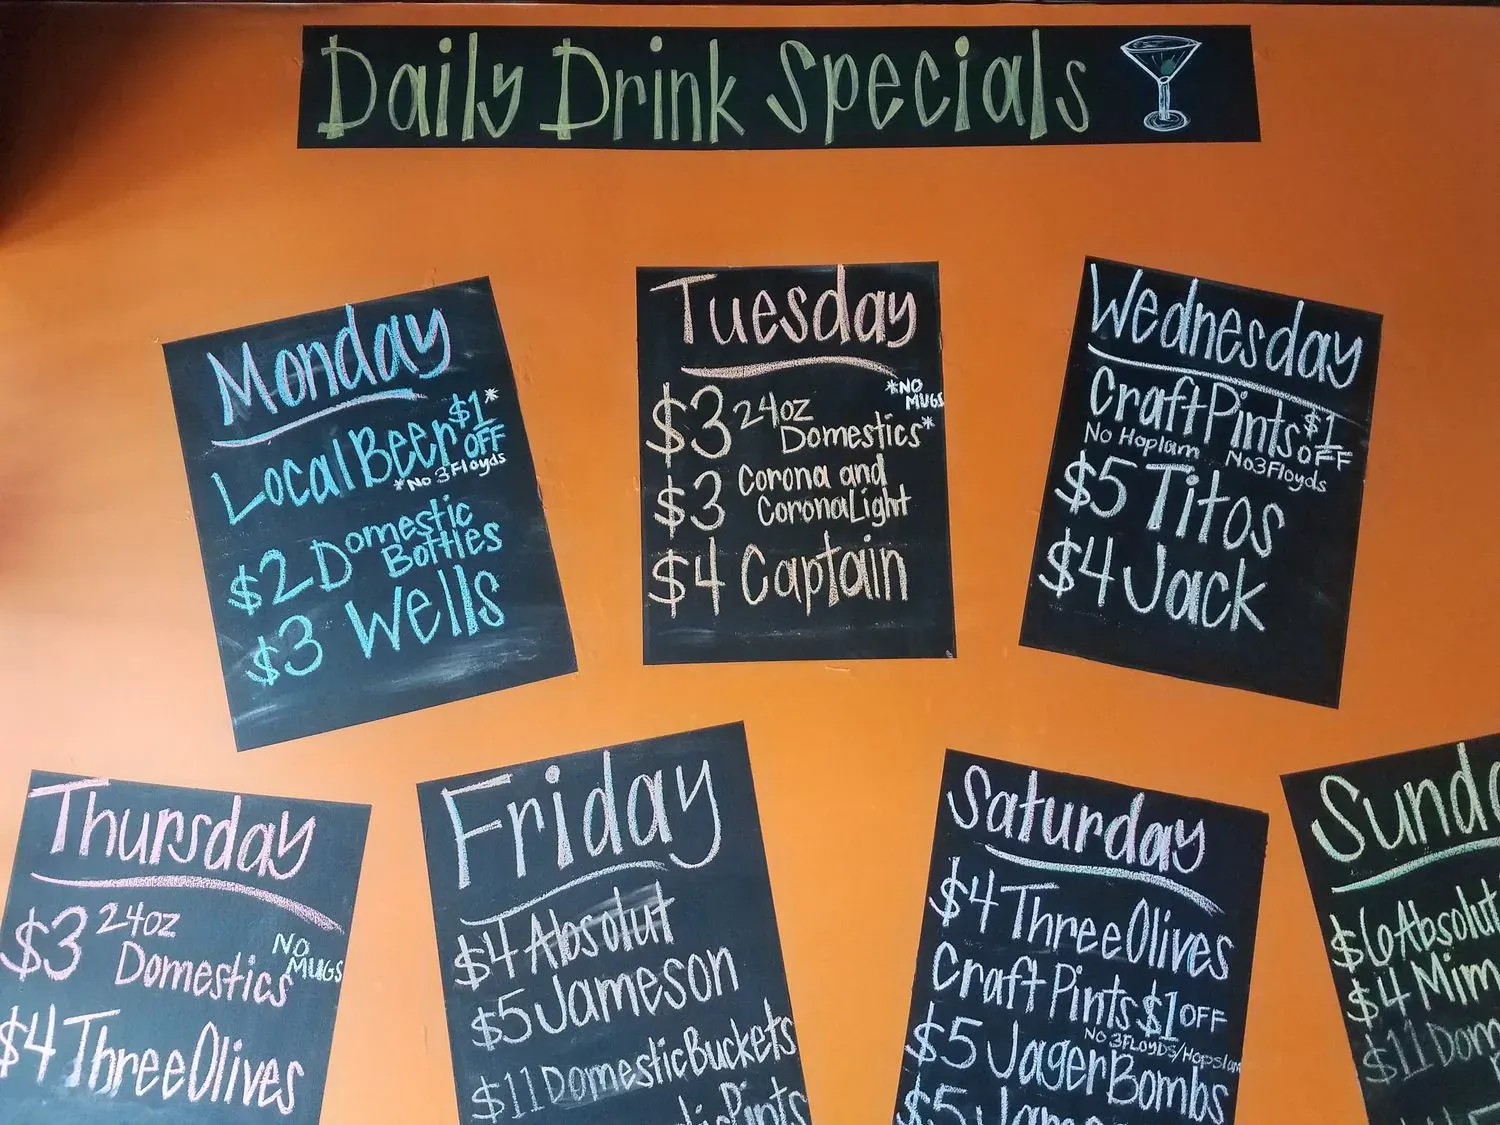 Daily Drink Specials
Monday
Local Beer $1* OFF
*No 3Floyds
$2 Domestic
Bottles
$3 Wells
Tuesday
*NO
MUGS
$3 24oz
Domestics*
$3 Corona and
Corona Light
$4 Captain
Wednesday
Craft Pints $1 OFF
No Hoplam No3Floyds
$5 Titos
$4 Jack
Thursday
$3 24oz
Domestics
NO
MUGS
$4 Three Olives
Friday
$4 Absolut
$5 Jameson
$11 Domestic Buckets
Pints
Saturday
$4 Three Olives
Craft Pints $1 OFF
NO 3FLOYDS/Hopslam
$5 JagerBombs
$5 Jame
Sunda
$6 Absolut
$4 Mim
$11 Dom